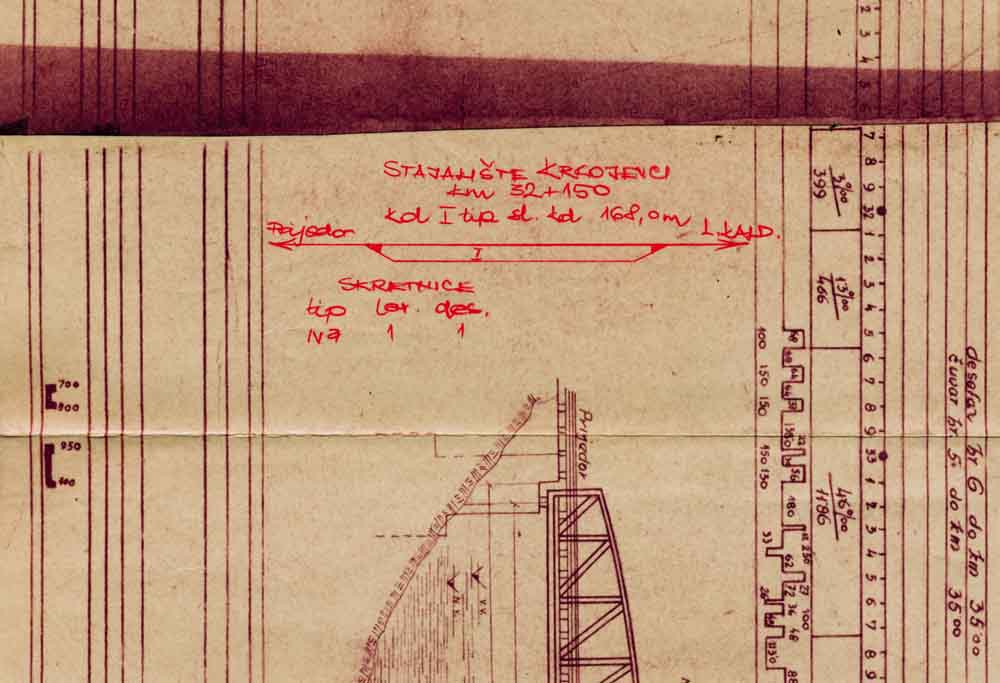 STAJALIŠTE KRKOJEVCI
km 32+150
kol I tip sl. kol 168,0m
Prijedor L.KALD.
I
SKRETNICE
tip lev. des.
IVa 1 1
700
800
950
Prijedor
N.V.
V.V.
100 150 150 150 150 180
33
62 72 36 48
27 100
3‰
399
13‰
466
4,6‰
1186
2
3
4
5
6
7
8
9
32
1
2
3
4
5
6
7
8
9
33
1
2
3
4
5
6
7
8
9
desetar br 6 do km 35.00
čuvar br. 5 do km 35.00